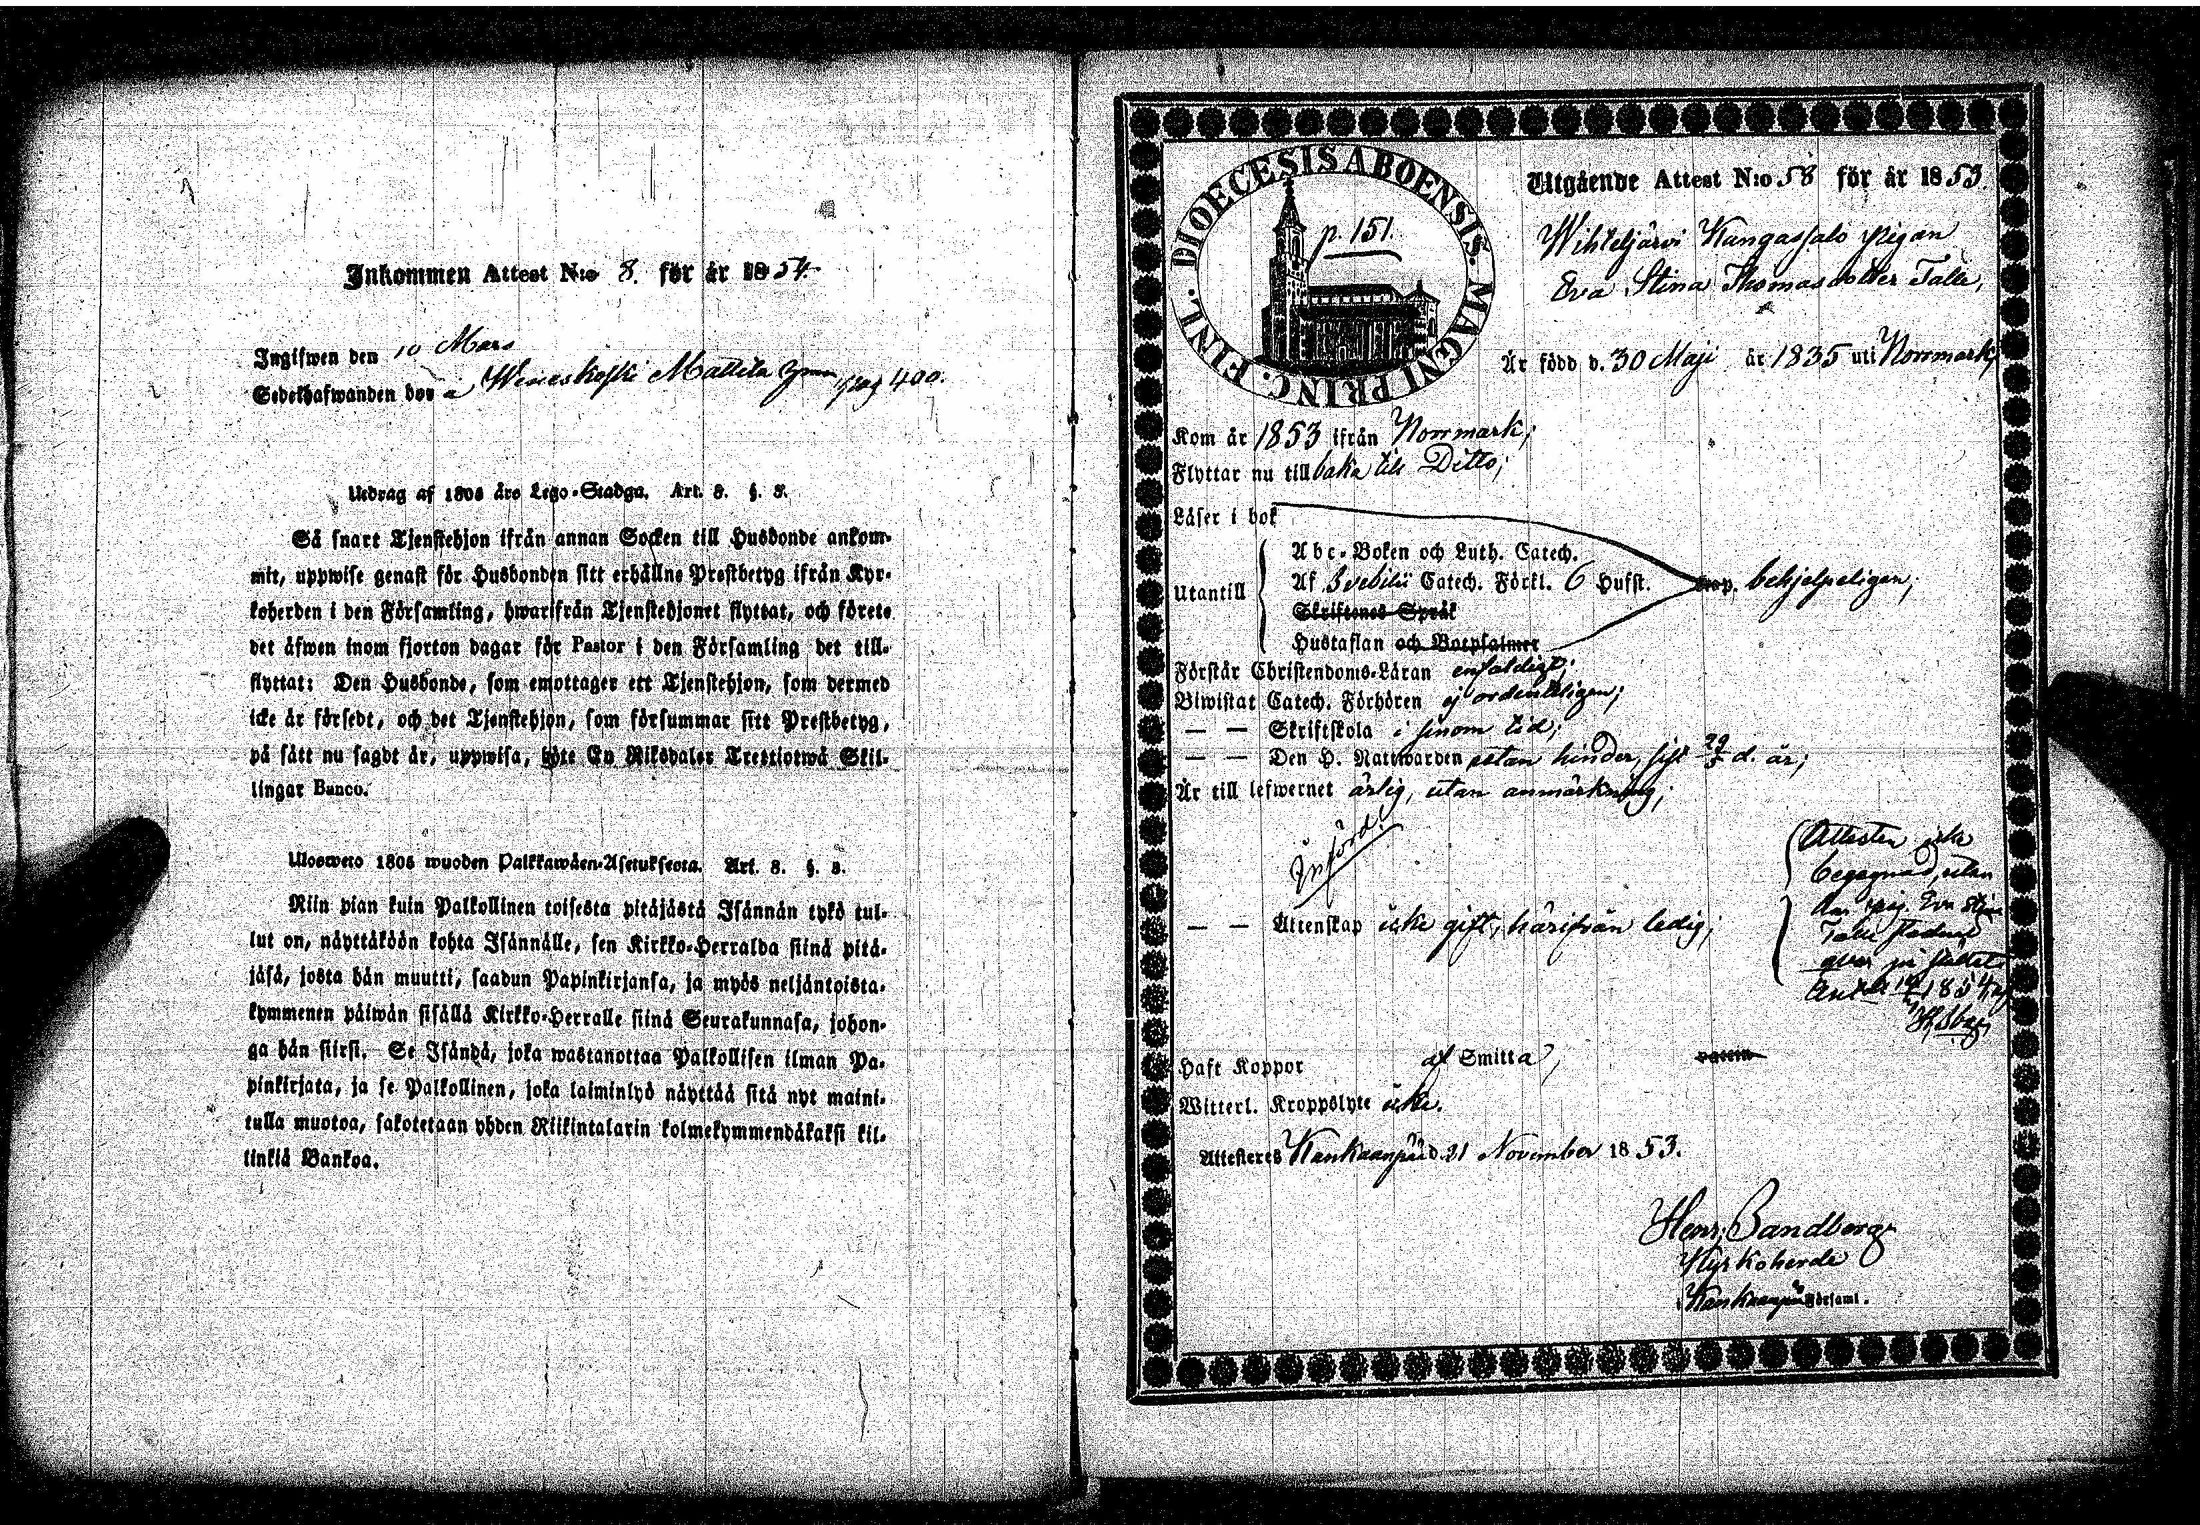 Inkommen Attest N:o 8. för år 1854.
Ingifwen den 10 Mars
Sedelhafwanden bor Mattila pag 400.
Utdrag af 1805 års Lego-Stadga. Art. 8. §. 3.
Så snart Tjenstehjon ifrån annan Socken till Husbonde ankom-
mit, uppwise genast för Husbonden sitt erhållne Prestbetyg ifrån Kyr-
koherden i den Församling, hwarifrån Tjenstehjonet flyttat, och förete
det äfwen inom fjorton dagar för Pastor i den Församling det till-
flyttat: Den Husbonde, som emottager ett Tjenstehjon, som dermed
icke är försedt, och det Tjenstehjon, som försummar sitt Prestbetyg,
på sätt nu sagdt är, uppwisa, böte En Riksdaler Trettiotwå Skil-
lingar Banco.
Ulosweto 1805 wuoden Palkkawäen-Asetuksesta. Art. 8. §. 3.
Niin pian kuin Palkollinen toisesta pitäjästä Isännän tykö tul-
lut on, näyttäköön kohta Isännälle, sen Kirkko-Herralda siinä pitä-
jäsä, josta hän muutti, saadun Papinkirjansa, ja myös neljäntoista-
kymmenen päiwän sisällä Kirkko-Herralle siinä Seurakunnasa, johon-
ga hän siirsi. Se Isändä, joka wastanottaa Palkollisen ilman Pa-
pinkirjata, ja se Palkollinen, joka laiminlyö näyttää sitä nyt maini-
tulla muotoa, sakotetaan yhden Riikintalarin kolmekymmendäkaksi kil-
linkiä Bankoa.
DIOECESIS ABOENSIS. MAGNI PRINC. FINL.
p. 151.
Utgående Attest N:o 58 för år 1853.
Wihteljärvi Kangassalo pigan
Eva Stina Thomasdotter Talle,
Är född d. 30 Maji år 1835 uti Norrmark,
Kom år 1853 ifrån Norrmark;
Flyttar nu till baka till Ditto;
Läser i bok
Abc-Boken och Luth. Catech.
Utantill Af Svebilii Catech. Förkl. 6 Hufst. behjelpeligen;
Skriftenes Språk
Hustaflan och Botpsalmer
Förstår Christendoms-Läran enfaldigt;
Biwistat Catech. Förhören ej ordentligen;
— — Skriftskola i sinom tid;
— — Den H. Nattwarden utan hinder, sist d. år;
Är till lefwernet ärlig, utan anmärkning;
Införd!
Attesten icke
begagnad, utan
har pig. Eva Stina
Talle stadnat
qvar på stället
1854
— — Äktenskap icke gift, härifrån ledig;
Haft Koppor af Smitta,
Witterl. Kroppslyte icke.
Attesteres Kankaanpää d. 21 November 1853.
Henr. Sandberg
Kyrkoherde
Kankaanpää Församl.